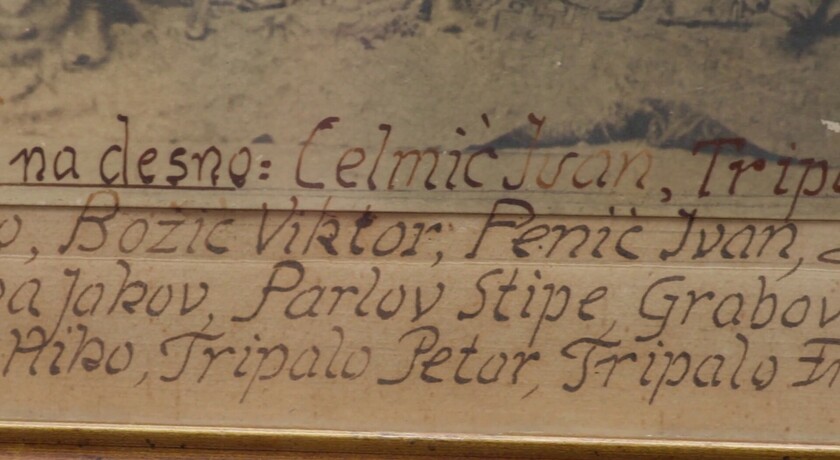 na desno: Celmić Ivan, Trip
o, Božić Viktor, Penić Ivan,
Jakov, Parlov Stipe, Grabov
Hiko, Tripalo Petar, Tripalo